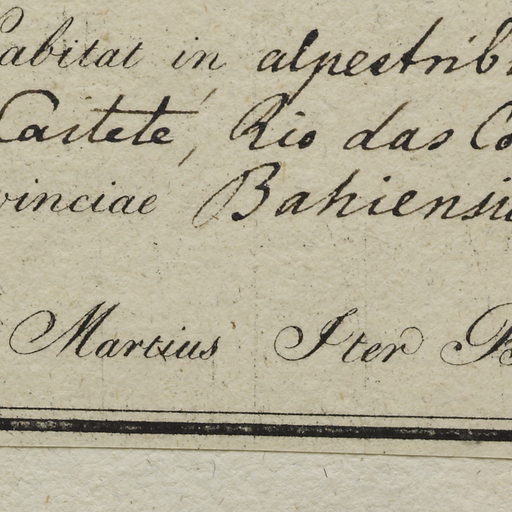 Habitat in alpestrib
Caiteté, Rio das Co
vinciae Bahiensi
Martius Iter B